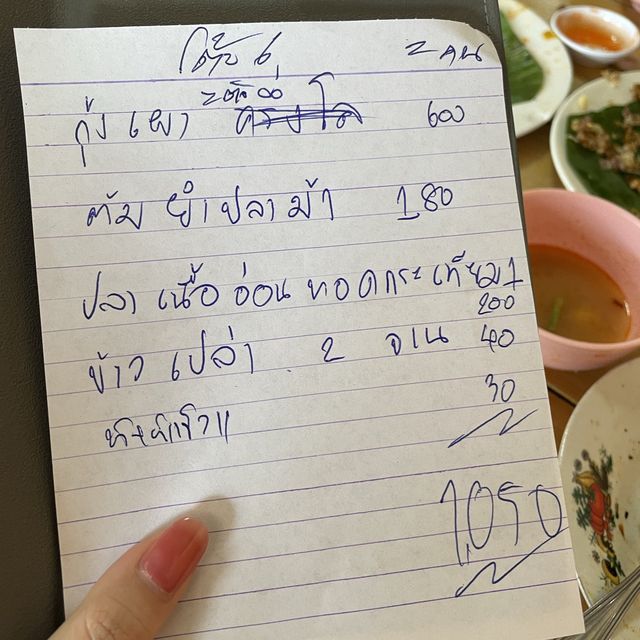 โต๊ะ 6 2 คน
2 ตัว
กุ้ง เผา 600
ต้ม ยำ ปลา ม้า 180
ปลา เนื้อ อ่อน ทอด กระ เทียม 1
200
ข้าว เปล่า 2 จาน 40
30
1,050